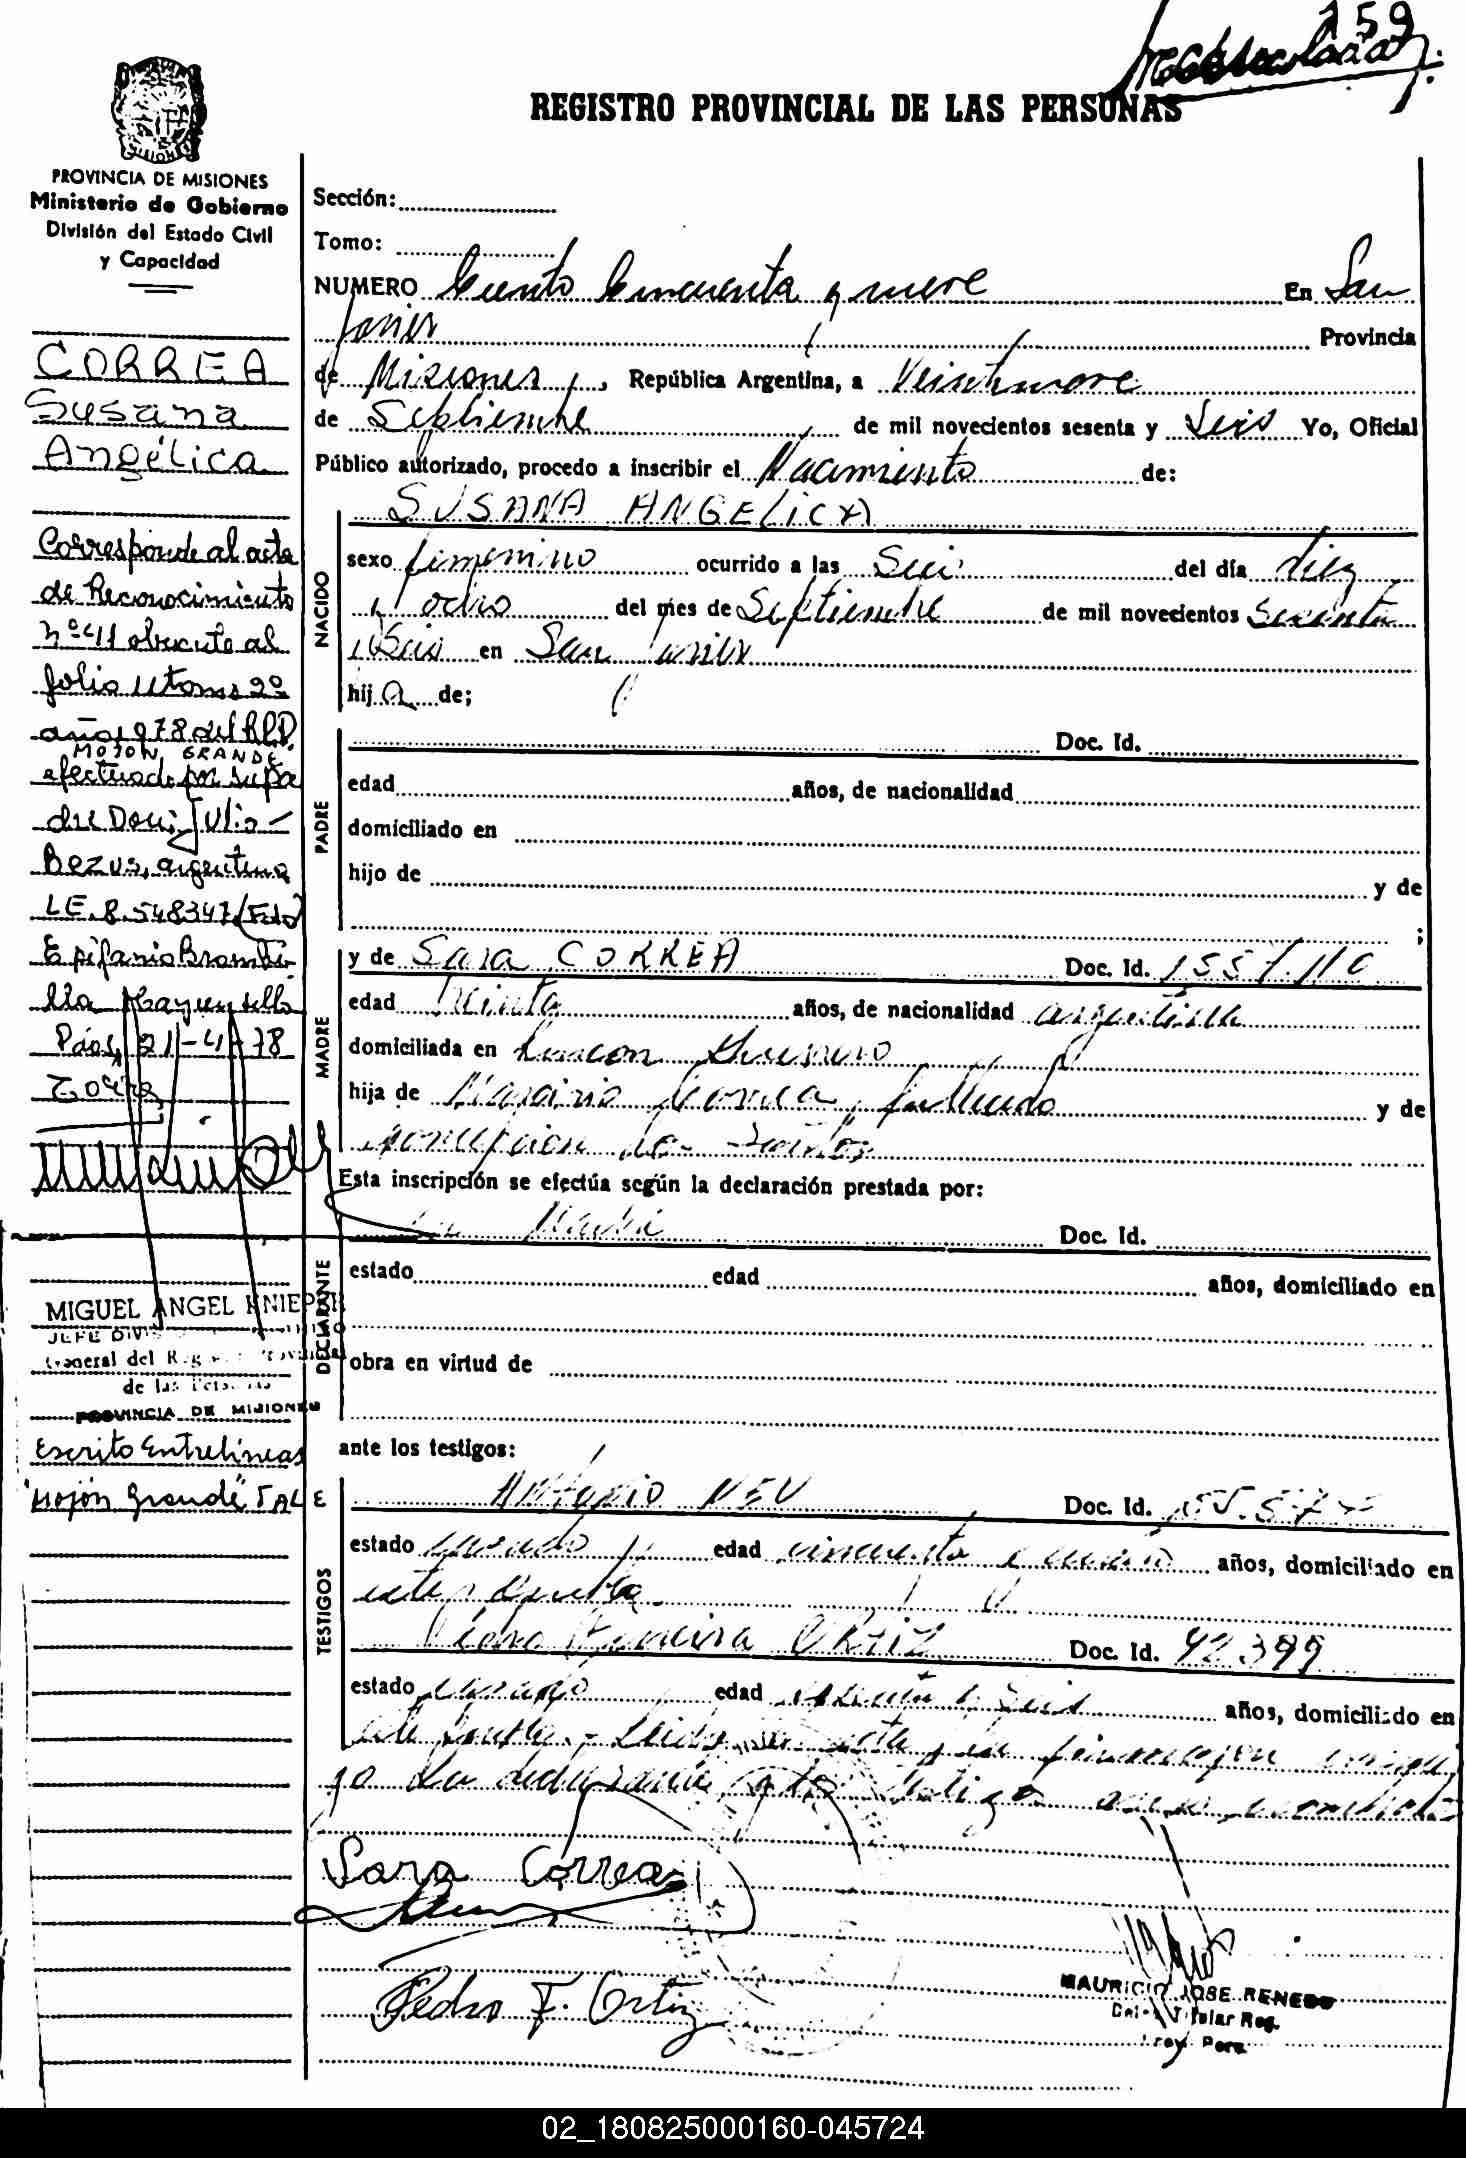 159
REGISTRO PROVINCIAL DE LAS PERSONAS
PROVINCIA DE MISIONES
Ministerio de Gobierno
División del Estado Civil
y Capacidad
CORREA
Susana
Angélica
Corresponde al acta
de Reconocimiento
nº 41 obrante al
folio 11 tomo 2º
año 1978 del R.P.P.
MOJON GRANDE
efectuado por su pa
dre Don: Julio
Bezus, argentino
LE. 8.548347
Epifanio Brambi
lla
Pdas, 21-4-78
MIGUEL ANGEL KNIEPP
JEFE
General del Reg Provincial
de las Personas
PROVINCIA DE MISIONES
Escrito Entrelineas
"Mojón Grande" VALE
Sección:
Tomo:
NUMERO Ciento Cincuenta y nueve En San
Javier Provincia
de Misiones, República Argentina, a Veintinueve
de Septiembre de mil novecientos sesenta y Seis Yo, Oficial
Público autorizado, procedo a inscribir el Nacimiento de:
NACIDO
SUSANA ANGELICA
sexo femenino ocurrido a las Seis del día diez
y ocho del mes de Septiembre de mil novecientos Sesenta
y Seis en San Javier
hij a de;
PADRE
Doc. Id.
edad años, de nacionalidad
domiciliado en
hijo de y de
;
MADRE
y de Sara CORREA Doc. Id. 1557110
edad treinta años, de nacionalidad argentina
domiciliada en Rincon Guerrero
hija de Correa, fallecido y de
Concepcion Do Santos
Esta inscripción se efectúa según la declaración prestada por:
DECLARANTE
la Madre Doc. Id.
estado edad años, domiciliado en
obra en virtud de
ante los testigos:
TESTIGOS
Antonio NEU Doc. Id.
estado casado edad cincuenta y años, domiciliado en
este pueblo.
Pedro Ferreira ORTIZ Doc. Id. 42.399
estado casado edad y Seis años, domiciliado en
este pueblo.- Leida el acta, la firman conmi
go la declarante y los testigos
Sara Correa
Pedro F. Ortiz
MAURICIO JOSE RENEDO
Titular Reg.
Prov. Pers.
02_180825000160-045724